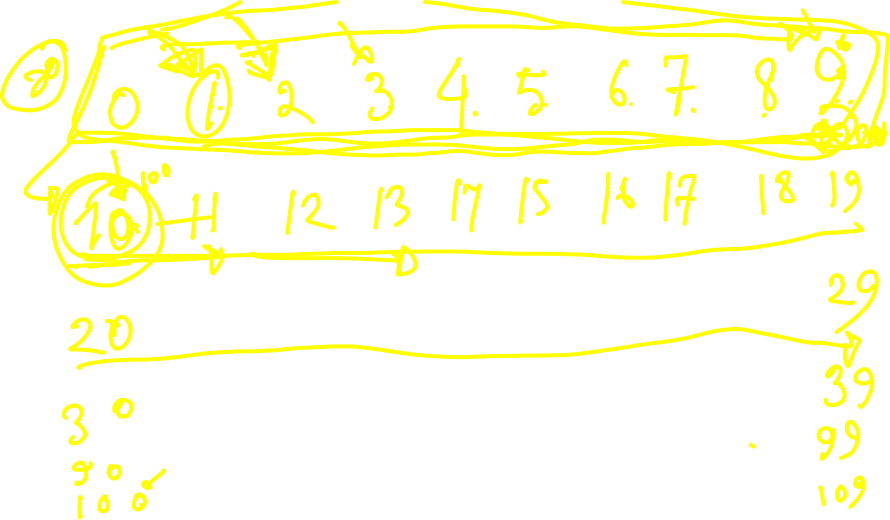 0 1. 2 3 4. 5. 6. 7. 8. 9.
100
10. 11 12 13 14 15 16 17 18 19
20 29
30 39
90 99
100 109